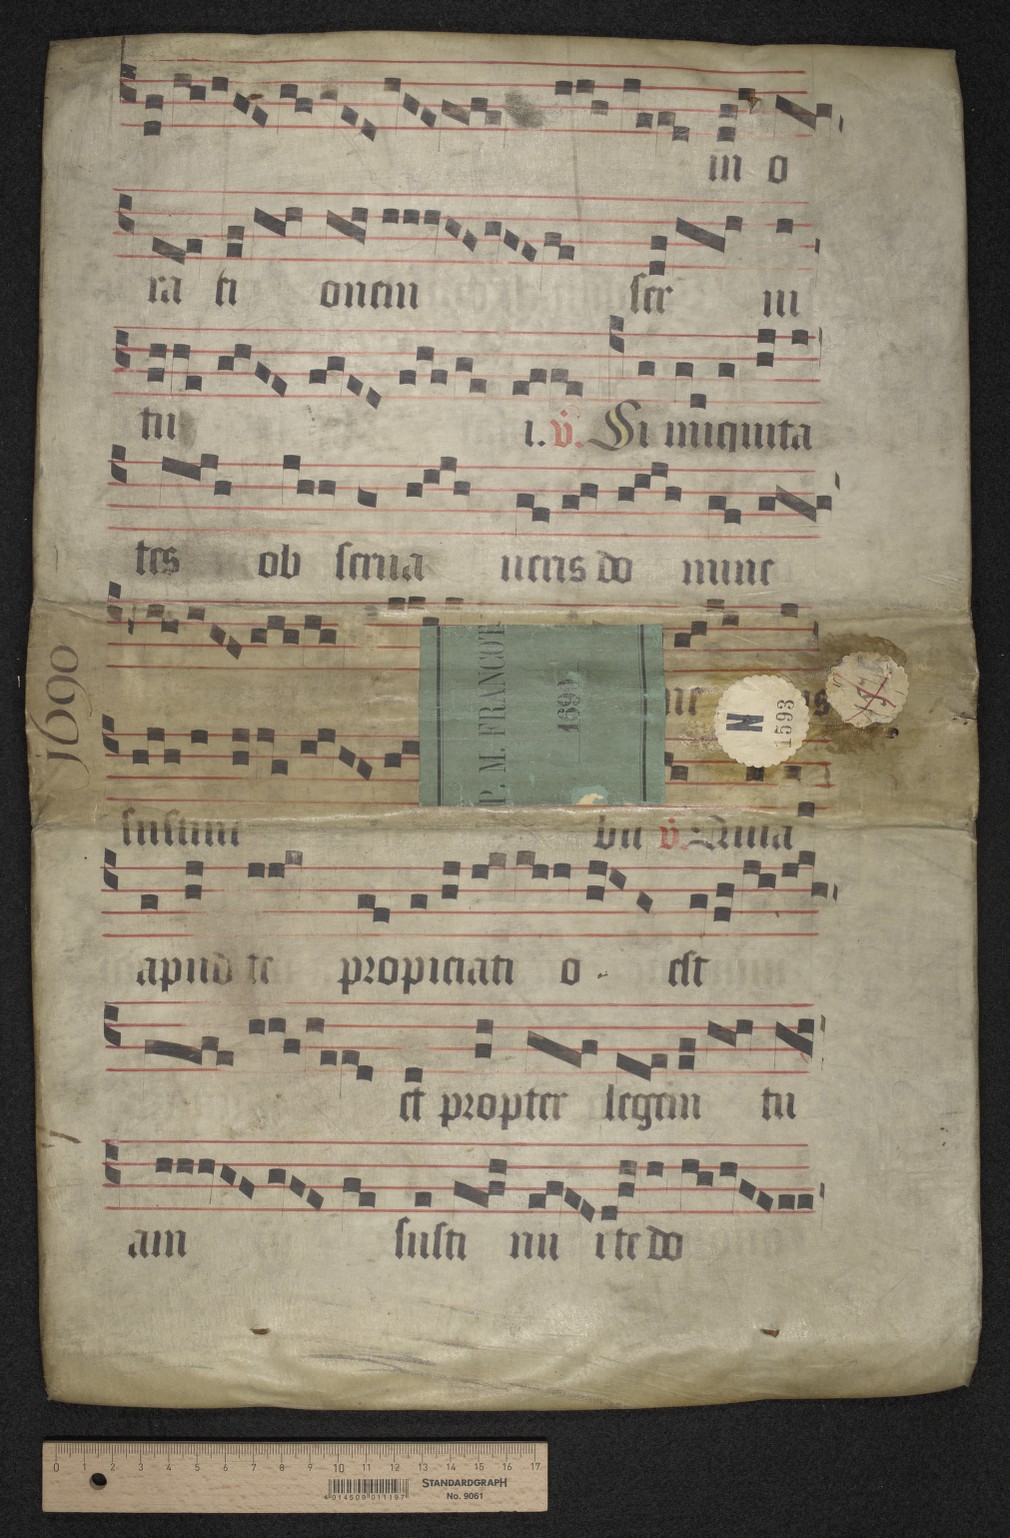 in o
ra ti onem ser ui
tu i. v̇. Si iniquita
tes ob serua ueris do mine
1690
P. M. FRANCOT
169
N
1593
sustine bit v̇. Quia
apud te propiciati o est
et propter legem tu
am susti nu i te do
0 1 2 3 4 5 6 7 8 9 10 11 12 13 14 15 16 17
4 014509 011197
STANDARDGRAPH
No. 9061